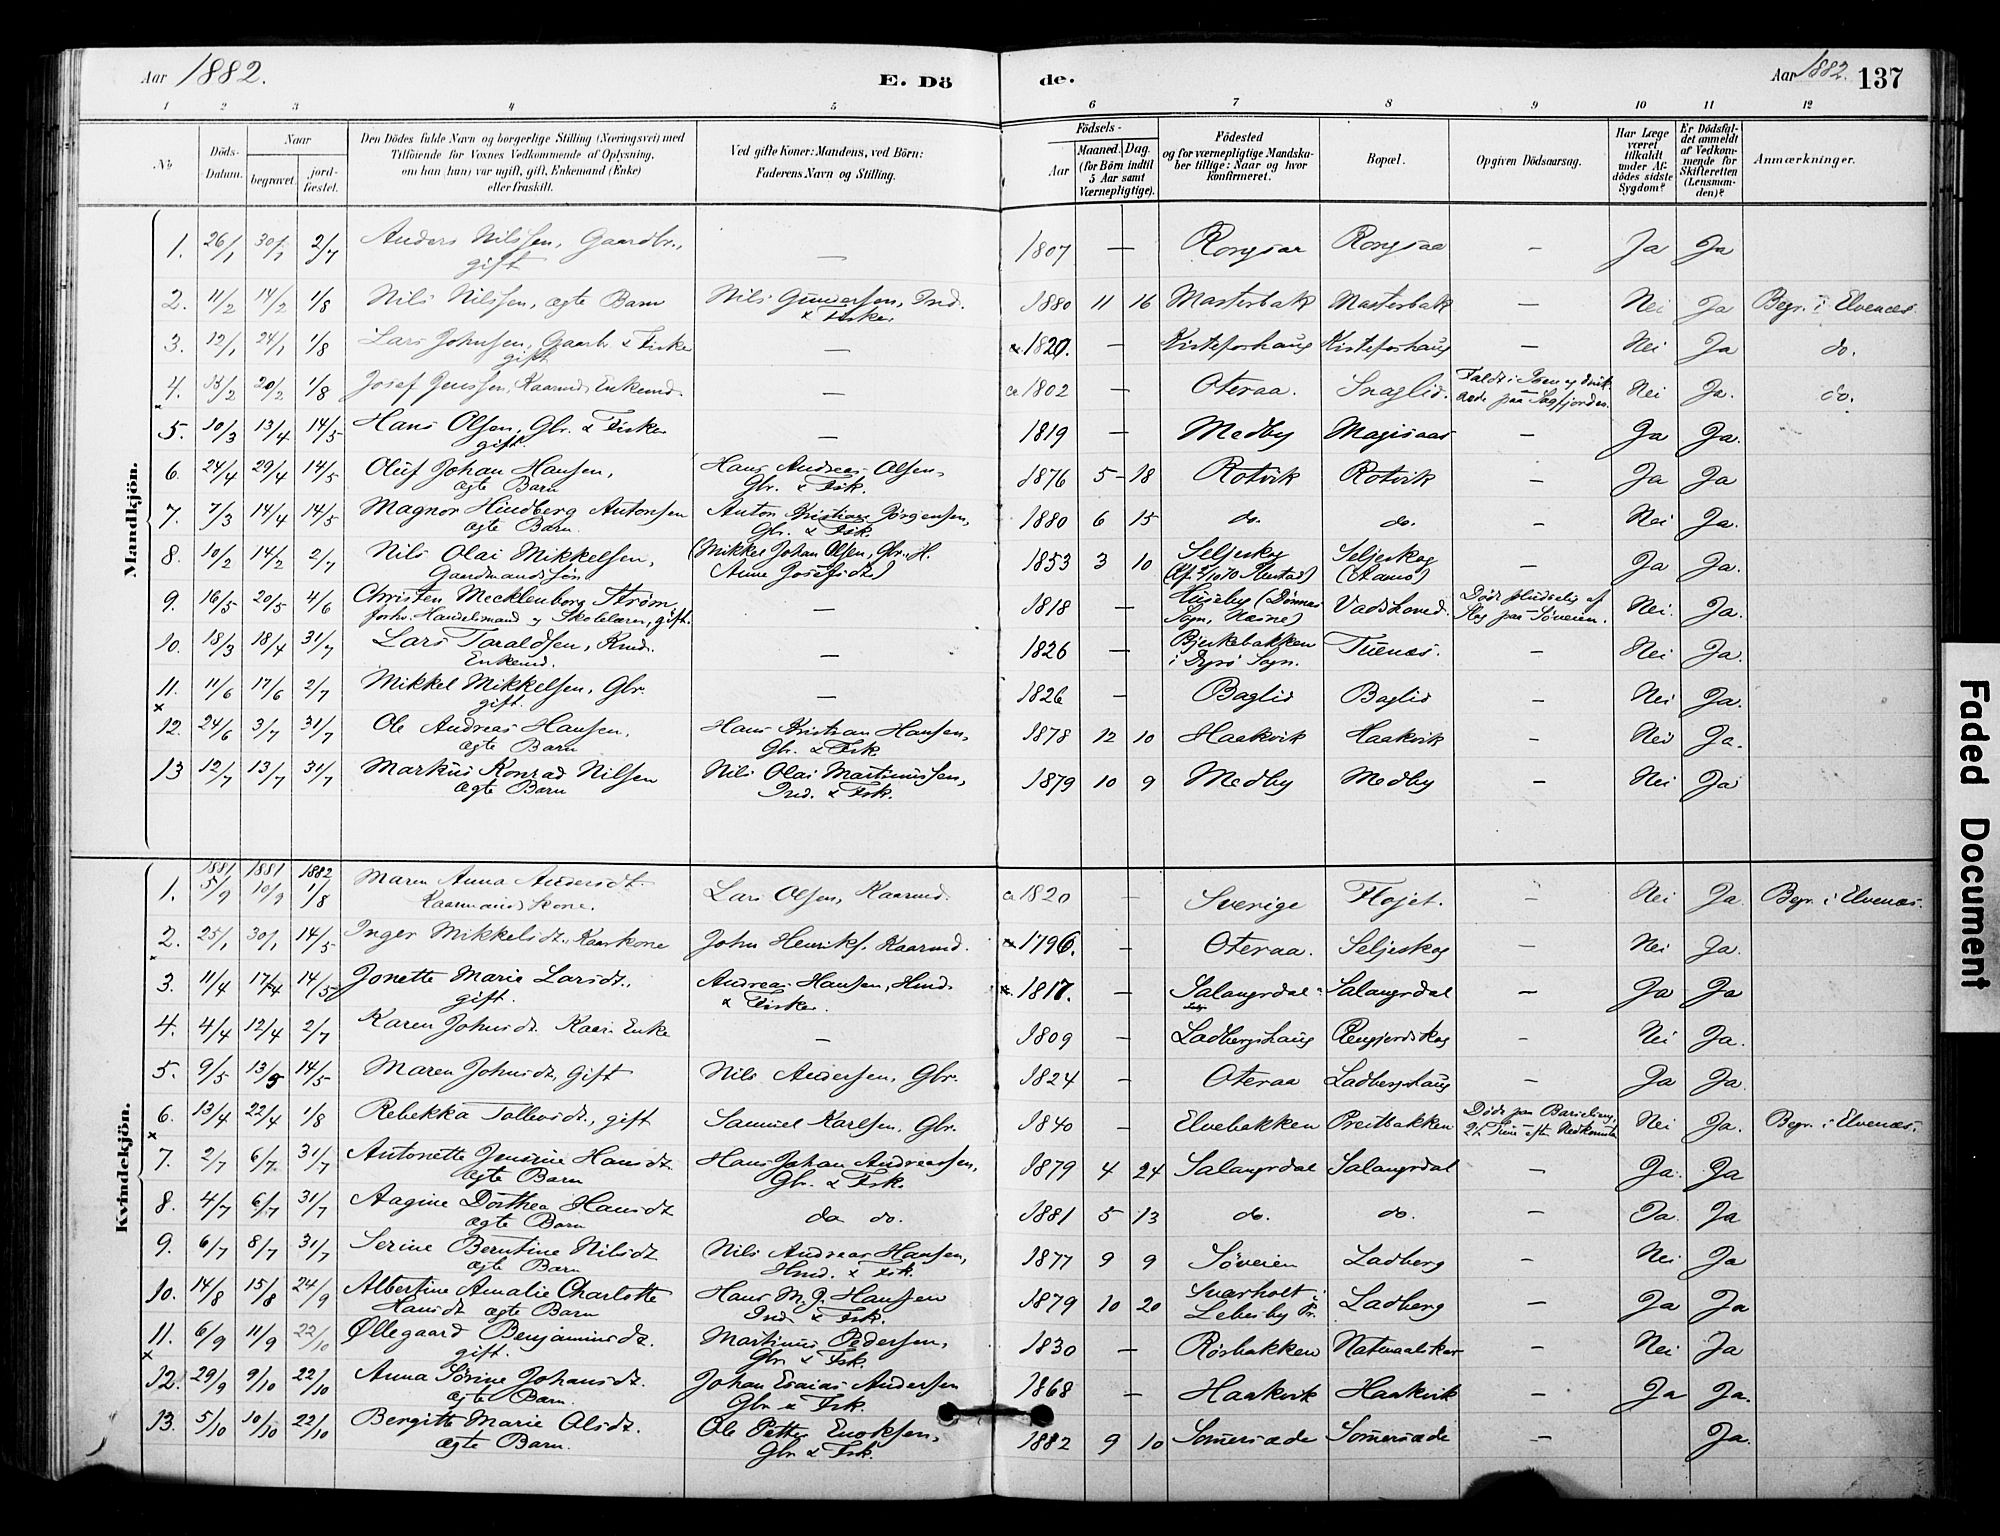 Aar 1882. E. Dö
de. Aar 1882. 137
1 2 3 4 5 6 7 8 9 10 11 12
No.
Döds-Datum.
Naar
begravet.
jord-fæstet.
Den Dödes fulde Navn og borgerlige Stilling (Næringsvei) med
Tilföiende for Voxnes Vedkommende af Oplysning,
om han (hun) var ugift, gift, Enkemand (Enke)
eller fraskilt.
Ved gifte Koner: Mandens, ved Börn:
Faderens Navn og Stilling.
Födsels-
Aar
Maaned. Dag.
(for Börn indtil
5 Aar samt
Værnepligtige).
Födested
og for værnepligtige Mandska-
ber tillige: Naar og hvor
konfirmeret.
Bopæl.
Opgiven Dödsaarsag.
Har Læge
været
tilkaldt
under Af-
dödes sidste
Sygdom?
Er Dödsfal-
det anmeldt
af Vedkom-
mende for
Skifteretten
(Lensman-
den)?
Anmærkninger.
Mandkjön.
1. 26/1 30/1 2/7 Anders Nilssen, Gaardbr., — 1807 — Rongsaa Rongsaa — Ja Ja
gift
2. 11/2 14/2 1/8 Nils Nilssen, ægte Barn Nils Gundersen, Ind. 1880 11 16 Masterbak Masterbak — Nei Ja Begr. i Elvenæs.
& Fisker
3. 12/1 24/1 1/8 Lars Johnsen, Gaarbr. & Fisker — 1820. — Kisteforshaug Kisteforshaug — Nei Ja do.
gift
4. 13/2 20/2 1/8 Josef Jenssen, Kaarmd. Enkemd. — ca 1802 — Oteraa. Snaglid. Faldt i Søen og druk- Nei Ja. do.
nede paa Sagfjorden.
5. 10/3 13/4 14/5 Hans Olsen, Gbr. & Fisker — 1819 — Medby Magisaas — Ja Ja.
gift.
6 24/4 29/4 14/5 Oluf Johan Hansen, Hans Andreas Olsen, 1876 5 18 Rotvik Rotvik — Ja Ja
ægte Barn Gbr. & Fsk.
7. 7/3 14/4 14/5 Magnor Hindberg Antonsen Anton Kristian Jørgensen, 1880 6 15 do. do. — Nei Ja.
ægte Barn Gbr. & Fsk.
8. 10/2 14/2 2/7 Nils Olai Mikkelsen, (Mikkel Johan Olsen, Gbr., H. 1853 3 10 Seljeskog Seljeskog — Ja Ja.
Gaardmandssøn Anne Josefsdt.)
9. 16/5 20/5 4/6 Christen Mecklenborg Strøm, — 1818 — Huseby (Dønnes Vadshoved. Døde pludselig af Nei. Ja.
forhv. Handelsmand og Skolelærer, gift. Sogn, Nesne) Slag paa Søveien.
10. 18/3 18/4 31/7 Lars Taraldsen, — 1826 Bjerkebakken Tuenæs. — Nei Ja.
Enkemd. i Dyrø Sogn.
11. 11/6 17/6 2/7 Mikkel Mikkelsen, Gbr. — 1826 — Baglid Baglid — Nei Ja.
gift.
12. 24/6 3/7 31/7 Ole Andreas Hansen, Hans Kristian Hansen, 1878 12 10 Haakvik Haakvik — Nei Ja.
ægte Barn Gbr. & Fsk
13 12/7 13/7 31/7 Markus Konrad Nilsen Nils Olai Martinussen, 1879 10 9 Medby Medby — Nei Ja
ægte Barn Ind. & Fsk.
Kvindekjön.
1881 1881 1882
1. 5/9 10/9 1/8 Maren Anna Andersdt. Lars Olsen, Kaarmd. ca 1820 — Sverige Flojet. — Nei Ja. Begr. i Elvenæs.
Kaarmands Kone.
2. 25/1 30/1 14/5 Inger Mikkelsdt., Kaarkone John Henriks. Kaarmd. 1796. — Oteraa. Seljeskog — Nei Ja.
3. 11/4 17/4 14/5 Jonette Marie Larsdt., Andreas Hansen, Hmd. 1817. — Salangsdal Salangsdal — Ja Ja
gift. & Fisker.
4. 4/4 12/4 2/7 Karen Johnsdt. Kaar. Enke — 1809 — Ladbergshaug — Nei Ja.
5. 9/5 13/5 14/5 Maren Johnsdt., gift Nils Andersen, Gbr. 1824 — Oteraa Ladbergshaug — Ja Ja.
6. 13/4 22/4 1/8 Rebekka Tollevsdt., gift Samuel Karlsen, Gbr. 1840 — Elvebakken Preitbakken Døde paa Barselseng Nei Ja. Begr. i Elvenæs.
7. 2/7 6/7 31/7 Antonette Jensine Hansdt. Hans Johan Andreassen, 1879 4 24 Salangsdal Salangsdal — Ja. Ja
ægte Barn Gbr. & Fsk.
8. 4/7 6/7 31/7 Aagine Dorthea Hansdt do do. 1881 5 13 do. do. — Ja. Ja
ægte Barn
9. 6/7 8/7 31/7 Serine Berntine Nilsdt Nils Andreas Hansen, 1877 9 9 Søveien Ladberg — Nei Ja
ægte Barn Hmd. & Fsk.
10. 14/8 15/8 24/9 Albertine Amalie Charlotte Hans M. J. Hansen 1879 10 20 Sværholt i Ladberg — Ja Ja
Hansdt ægte Barn Ind. & Fsk. Lebesby Pr.
11. 6/9 11/9 22/10 Øllegaard Benjaminsdt. Martinus Pedersen, 1830 — Røsbakken — Nei Ja
gift. Gbr. & Fsk.
12. 29/9 9/10 22/10 Anna Sørine Johansdt. Johan Esaias Andersen 1868 — Haakvik Haakvik — Ja Ja.
ægte Barn. Gbr & Fsk.
13. 5/10 10/10 22/10 Bergitte Marie Olsdt. Ole Petter Enoksen, 1882 9 10 Somersæde Somersæde — Ja.
ægte Barn. Gbr & Fsk.
Faded Document